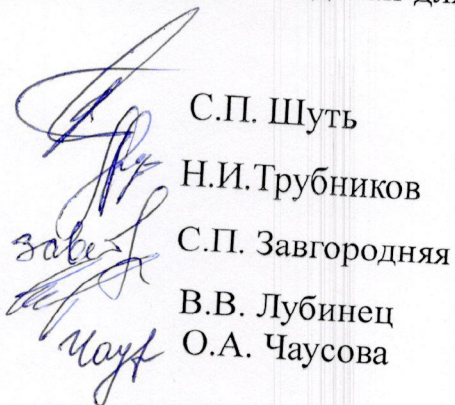 для
С.П. Шуть
Н.И.Трубников
С.П. Завгородняя
В.В. Лубинец
О.А. Чаусова